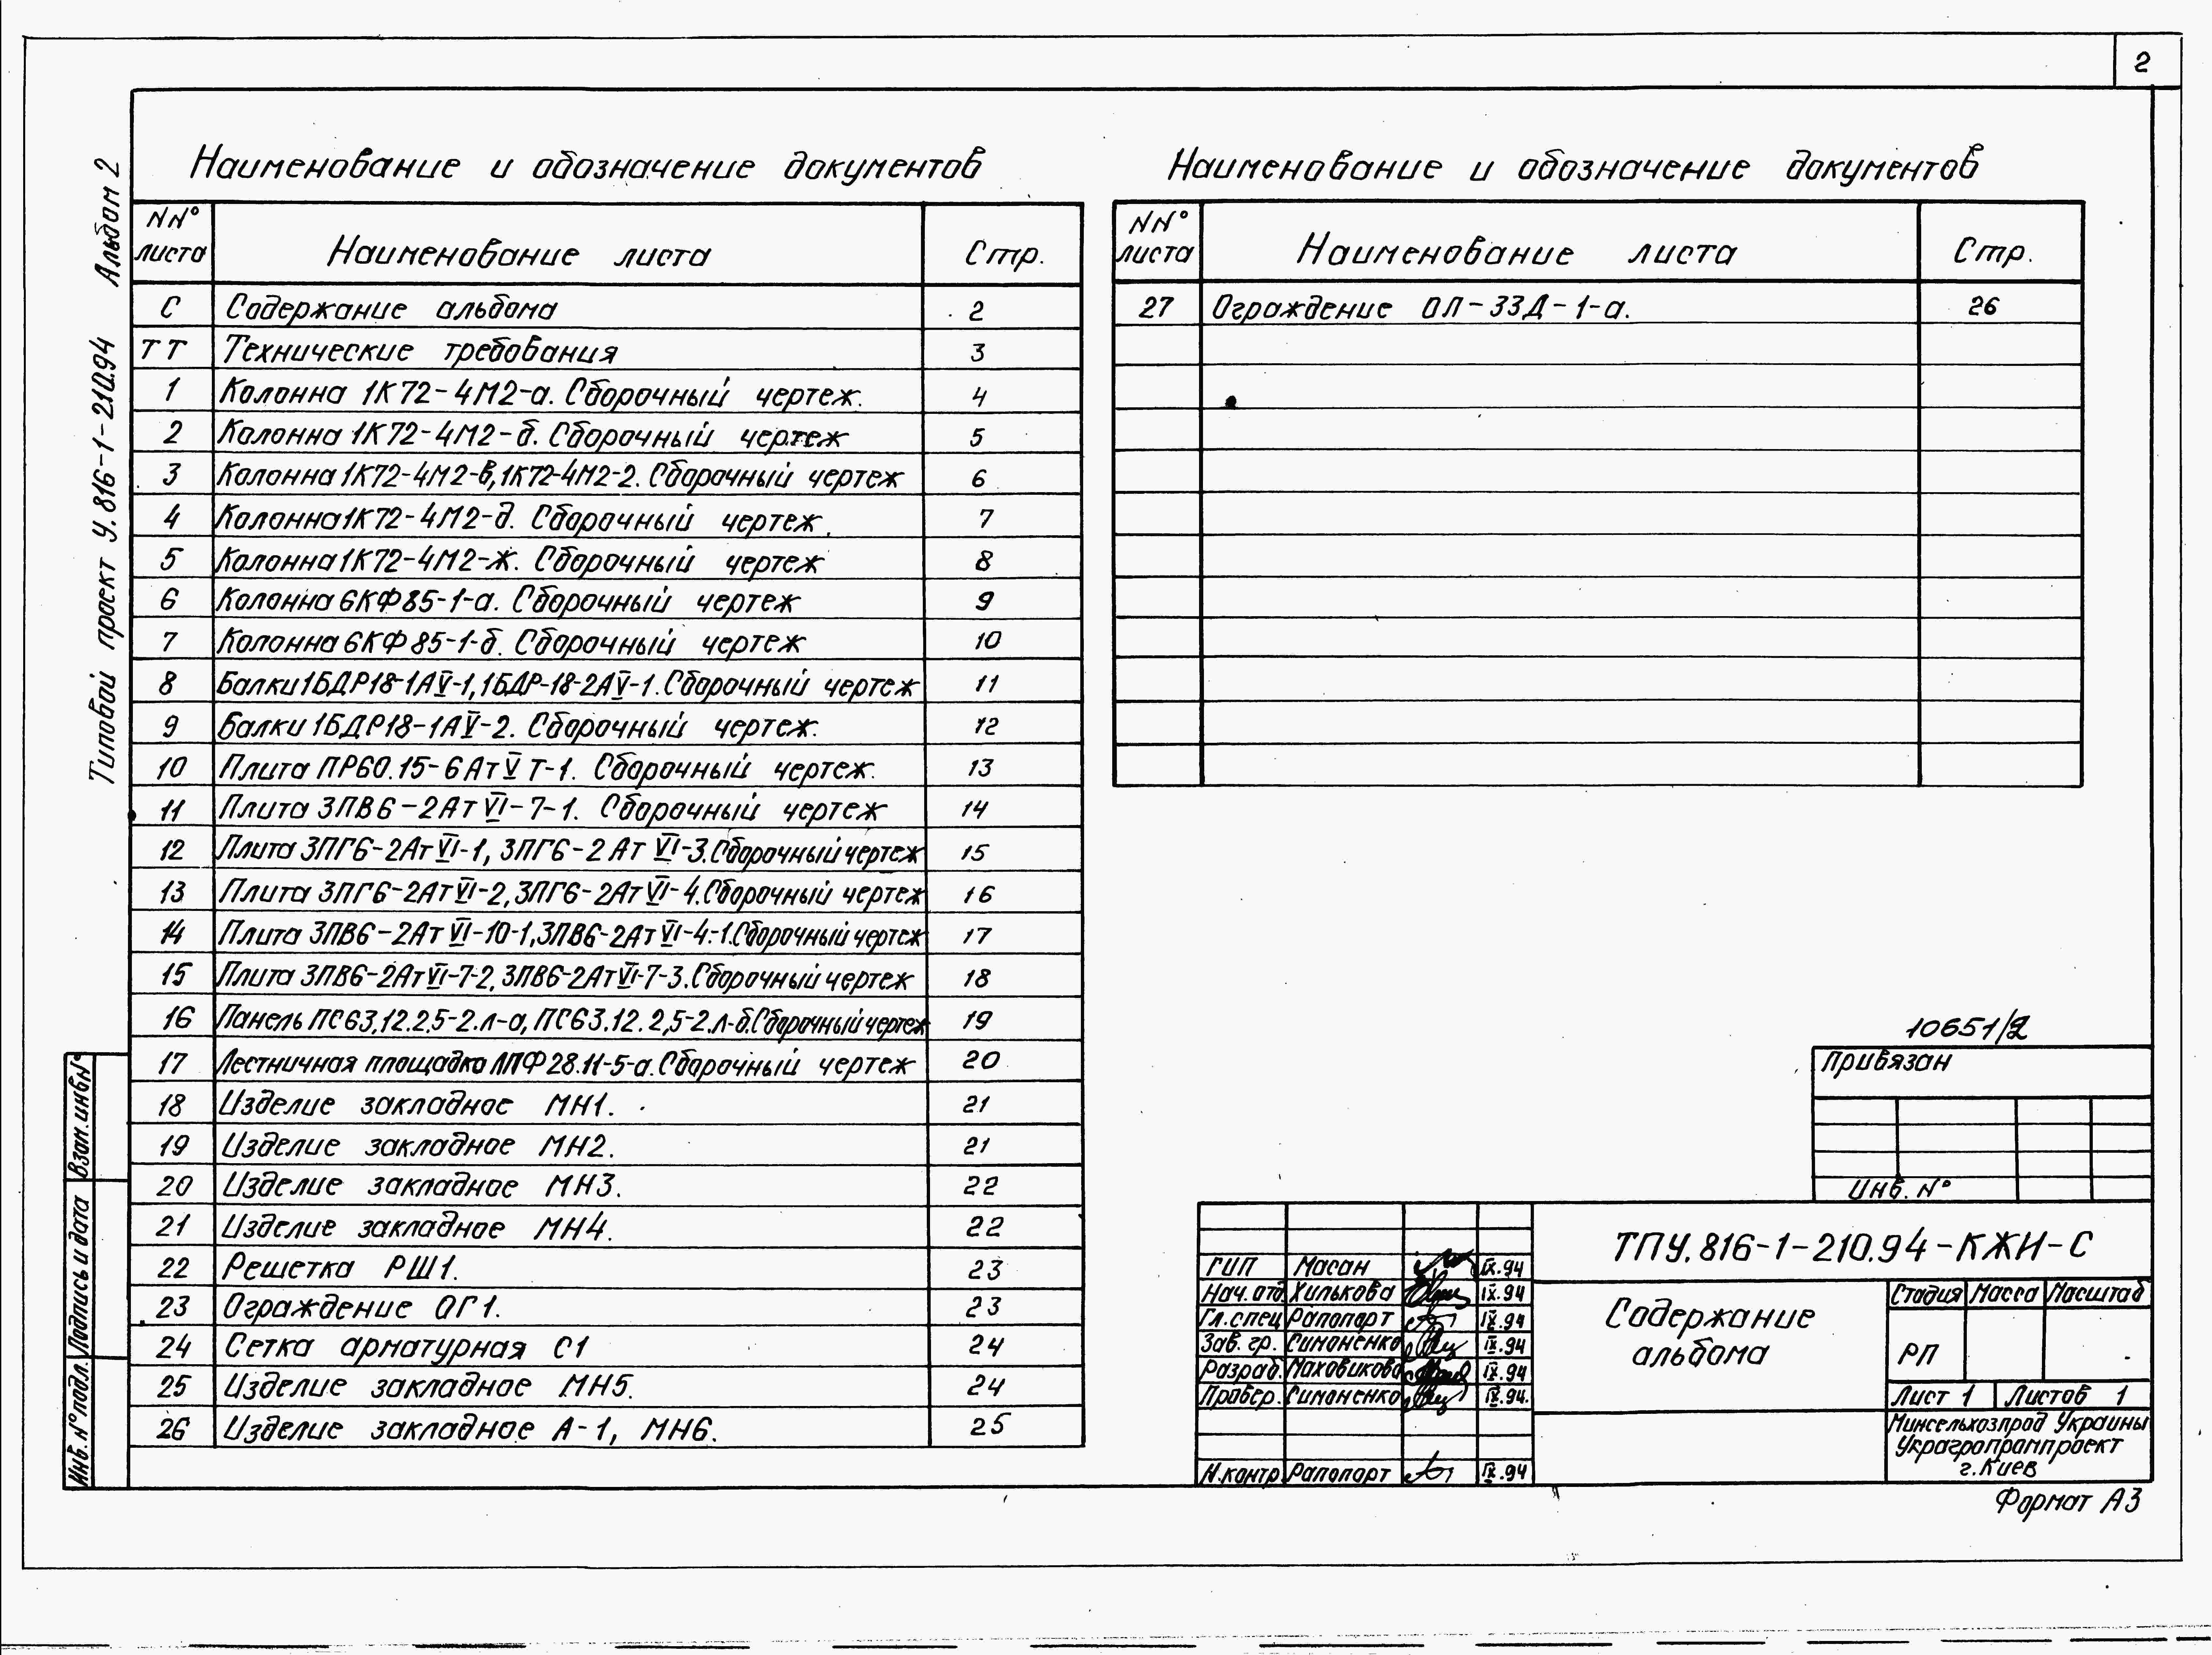 2
Типовой проект У.816-1-210.94 Альбом 2
Наименование и обозначение документов
NN° листа Наименование листа Стр.
С Содержание альбома 2
ТТ Технические требования 3
1 Колонна 1К72-4М2-а. Сборочный чертеж. 4
2 Колонна 1К72-4М2-б. Сборочный чертеж 5
3 Колонна 1К72-4М2-в, 1К72-4М2-2. Сборочный чертеж 6
4 Колонна 1К72-4М2-д. Сборочный чертеж. 7
5 Колонна 1К72-4М2-ж. Сборочный чертеж 8
6 Колонна 6КФ85-1-а. Сборочный чертеж 9
7 Колонна 6КФ85-1-б. Сборочный чертеж 10
8 Балки 1БДР18-1АV-1, 1БДР-18-2АV-1. Сборочный чертеж 11
9 Балки 1БДР18-1АV-2. Сборочный чертеж. 12
10 Плита ПР60.15-6АтVТ-1. Сборочный чертеж. 13
11 Плита 3ПВ6-2АтVI-7-1. Сборочный чертеж 14
12 Плита 3ПГ6-2АтVI-1, 3ПГ6-2АтVI-3. Сборочный чертеж 15
13 Плита 3ПГ6-2АтVI-2, 3ПГ6-2АтVI-4. Сборочный чертеж 16
14 Плита 3ПВ6-2АтVI-10-1, 3ПВ6-2АтVI-4-1. Сборочный чертеж 17
15 Плита 3ПВ6-2АтVI-7-2, 3ПВ6-2АтVI-7-3. Сборочный чертеж 18
16 Панель ПС63.12.2,5-2.л-а, ПС63.12.2,5-2.л-б. Сборочный чертеж 19
17 Лестничная площадка ЛПФ28.11-5-а. Сборочный чертеж 20
18 Изделие закладное МН1. 21
19 Изделие закладное МН2. 21
20 Изделие закладное МН3. 22
21 Изделие закладное МН4. 22
22 Решетка РШ1. 23
23 Ограждение ОГ1. 23
24 Сетка арматурная С1 24
25 Изделие закладное МН5. 24
26 Изделие закладное А-1, МН6. 25
Наименование и обозначение документов
NN° листа Наименование листа Стр.
27 Ограждение ОЛ-33Д-1-а. 26
10651/2
Привязан
Инв. N°
ТПУ.816-1-210.94-КЖИ-С
ГИП Масан IX.94
Нач. отд. Хилькова IX.94
Гл. спец Рапопорт IX.94
Зав. гр. Симоненко IX.94
Разраб. Маховикова IX.94
Провер. Симоненко IX.94.
Н. контр. Рапопорт IX.94
Содержание
альбома
Стадия Масса Масштаб
РП
Лист 1 Листов 1
Минсельхозпрод Украины
Украгропромпроект
г. Киев
Формат А3
Взам. инв N°
Подпись и дата
Инв. N° подл.